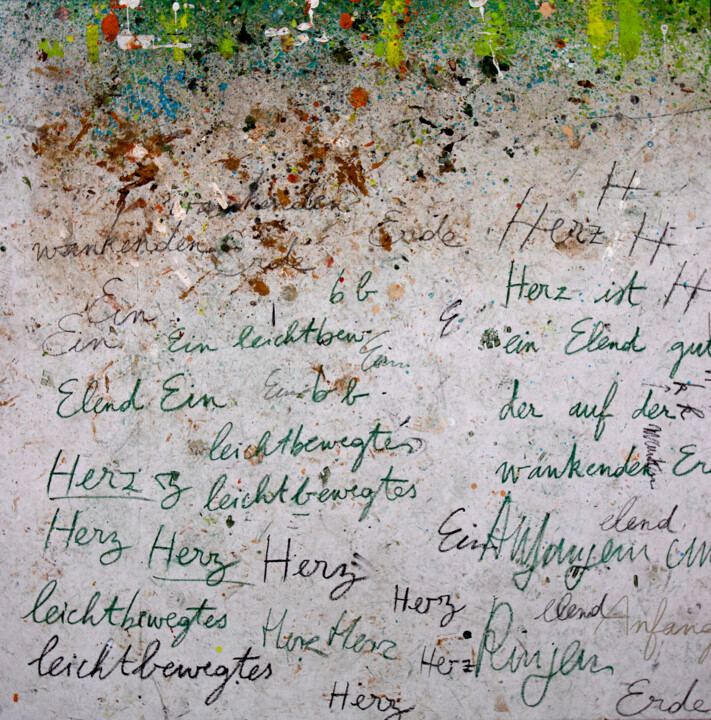 wankenden
wankenden Erde Erde Herz H H
Erde
b b Herz ist H
Ein
Ein Ein leichtbew Ein E ein Elend gut
Elend Ein Ein b b der auf der
leichtbewegtes
Herz z leichtbewegtes wankenden Er
Herz Herz Herz Ein Anfangen elend
leichtbewegtes Herz Herz Herz elend Anfang
leichtbewegtes Herz Ringen
Herz Erde